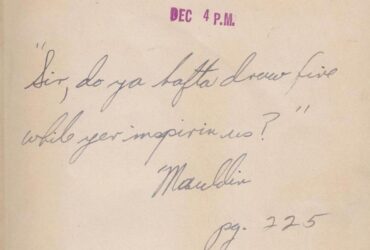 DEC 4 P.M.
"Sir, do ya hafta draw five
while yer inspirin us?"
Mauldin
pg. 225